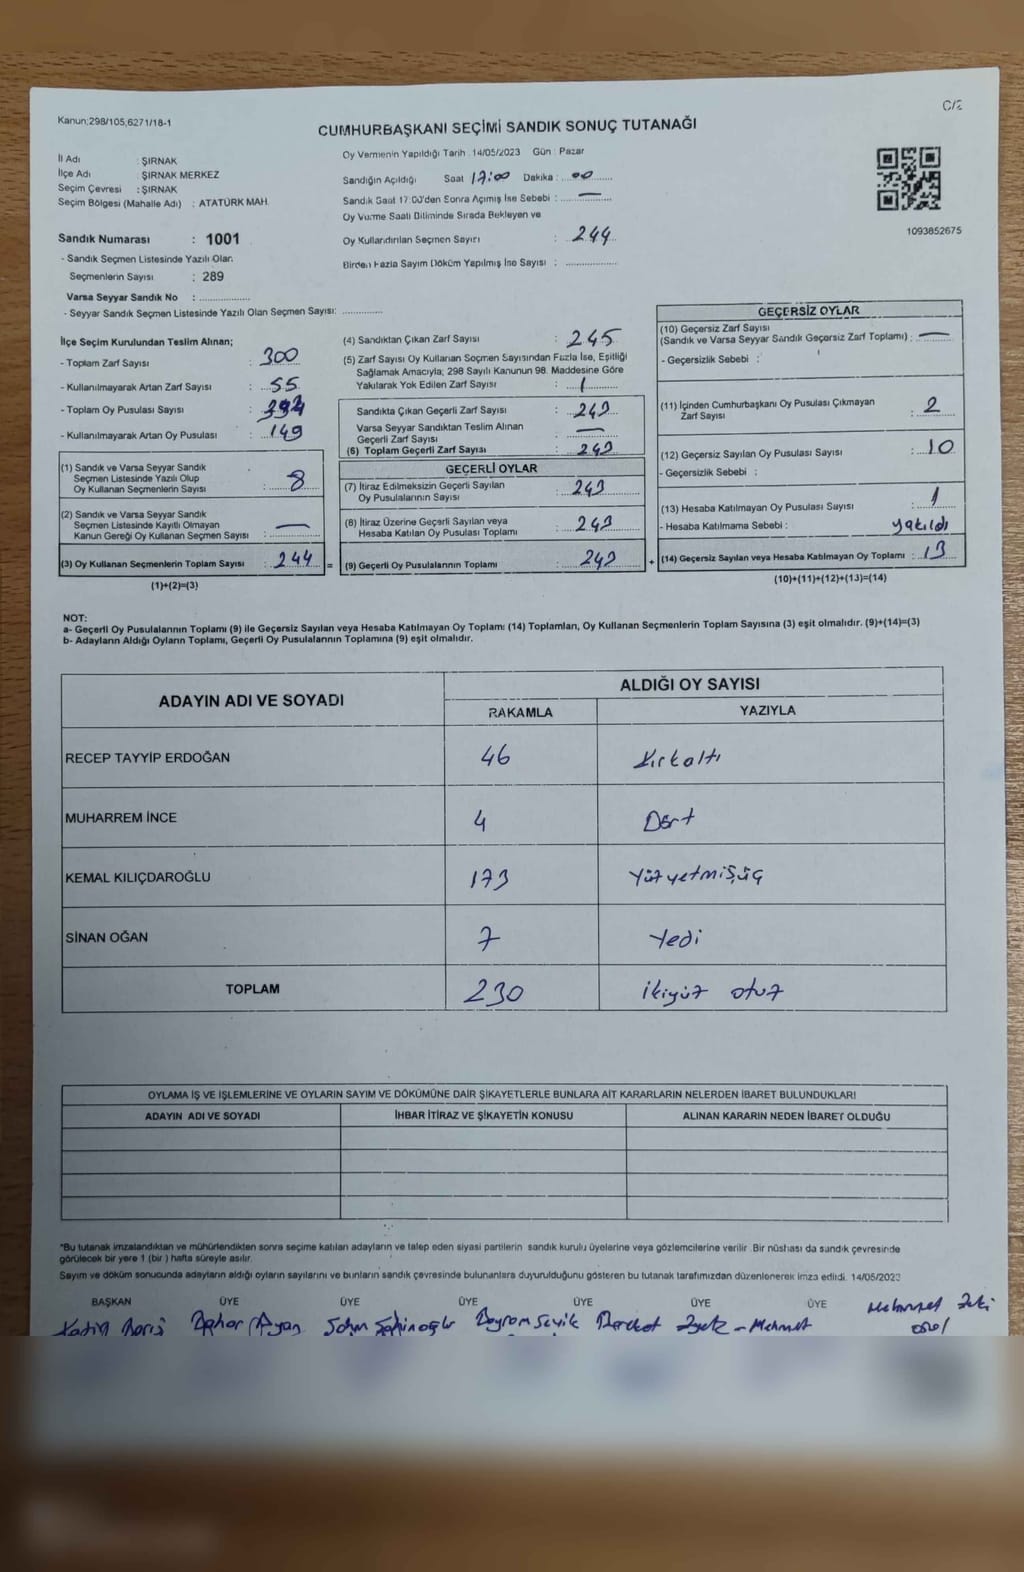 Kanun;298/105,6271/18-1
C/2
CUMHURBAŞKANI SEÇİMİ SANDIK SONUÇ TUTANAĞI
İl Adı : ŞIRNAK
İlçe Adı : ŞIRNAK MERKEZ
Seçim Çevresi : ŞIRNAK
Seçim Bölgesi (Mahalle Adı) : ATATÜRK MAH.
Sandık Numarası : 1001
- Sandık Seçmen Listesinde Yazılı Olan
Seçmenlerin Sayısı : 289
Varsa Seyyar Sandık No : ..................
- Seyyar Sandık Seçmen Listesinde Yazılı Olan Seçmen Sayısı: ..............
Oy Vermenin Yapıldığı Tarih : 14/05/2023 Gün : Pazar
Sandığın Açıldığı Saat 17:00 Dakika : 00
Sandık Saat 17:00'den Sonra Açılmış İse Sebebi : —
Oy Verme Saati Diliminde Sırada Bekleyen ve
Oy Kullandırılan Seçmen Sayısı : 244
Birden Fazla Sayım Döküm Yapılmış İse Sayısı : ..................
1093852675
İlçe Seçim Kurulundan Teslim Alınan;
- Toplam Zarf Sayısı : 300
- Kullanılmayarak Artan Zarf Sayısı : 55
- Toplam Oy Pusulası Sayısı :
- Kullanılmayarak Artan Oy Pusulası : 149
(1) Sandık ve Varsa Seyyar Sandık
Seçmen Listesinde Yazılı Olup
Oy Kullanan Seçmenlerin Sayısı : 8
(2) Sandık ve Varsa Seyyar Sandık
Seçmen Listesinde Kayıtlı Olmayan
Kanun Gereği Oy Kullanan Seçmen Sayısı : —
(3) Oy Kullanan Seçmenlerin Toplam Sayısı : 244 =
(1)+(2)=(3)
(4) Sandıktan Çıkan Zarf Sayısı : 245
(5) Zarf Sayısı Oy Kullanan Seçmen Sayısından Fazla İse, Eşitliği
Sağlamak Amacıyla; 298 Sayılı Kanunun 98. Maddesine Göre
Yakılarak Yok Edilen Zarf Sayısı : 1
Sandıkta Çıkan Geçerli Zarf Sayısı : 243
Varsa Seyyar Sandıktan Teslim Alınan
Geçerli Zarf Sayısı : —
(6) Toplam Geçerli Zarf Sayısı : 243
GEÇERLİ OYLAR
(7) İtiraz Edilmeksizin Geçerli Sayılan
Oy Pusulalarının Sayısı : 243
(8) İtiraz Üzerine Geçerli Sayılan veya
Hesaba Katılan Oy Pusulası Toplamı : 243
(9) Geçerli Oy Pusulalarının Toplamı : 243 +
GEÇERSİZ OYLAR
(10) Geçersiz Zarf Sayısı
(Sandık ve Varsa Seyyar Sandık Geçersiz Zarf Toplamı) : —
- Geçersizlik Sebebi :
(11) İçinden Cumhurbaşkanı Oy Pusulası Çıkmayan
Zarf Sayısı : 2
(12) Geçersiz Sayılan Oy Pusulası Sayısı : 10
- Geçersizlik Sebebi :
(13) Hesaba Katılmayan Oy Pusulası Sayısı : 1
- Hesaba Katılmama Sebebi : yakıldı
(14) Geçersiz Sayılan veya Hesaba Katılmayan Oy Toplamı : 13
(10)+(11)+(12)+(13)=(14)
NOT:
a- Geçerli Oy Pusulalarının Toplamı (9) ile Geçersiz Sayılan veya Hesaba Katılmayan Oy Toplamı (14) Toplamları, Oy Kullanan Seçmenlerin Toplam Sayısına (3) eşit olmalıdır. (9)+(14)=(3)
b- Adayların Aldığı Oyların Toplamı, Geçerli Oy Pusulalarının Toplamına (9) eşit olmalıdır.
ADAYIN ADI VE SOYADI
ALDIĞI OY SAYISI
RAKAMLA YAZIYLA
RECEP TAYYİP ERDOĞAN 46 Kırkaltı
MUHARREM İNCE 4 Dört
KEMAL KILIÇDAROĞLU 173 Yüzyetmişüç
SİNAN OĞAN 7 Yedi
TOPLAM 230 İkiyüz otuz
OYLAMA İŞ VE İŞLEMLERİNE VE OYLARIN SAYIM VE DÖKÜMÜNE DAİR ŞİKAYETLERLE BUNLARA AİT KARARLARIN NELERDEN İBARET BULUNDUKLARI
ADAYIN ADI VE SOYADI İHBAR İTİRAZ VE ŞİKAYETİN KONUSU ALINAN KARARIN NEDEN İBARET OLDUĞU
*Bu tutanak imzalandıktan ve mühürlendikten sonra seçime katılan adayların ve talep eden siyasi partilerin sandık kurulu üyelerine veya gözlemcilerine verilir. Bir nüshası da sandık çevresinde
görülecek bir yere 1 (bir) hafta süreyle asılır.
Sayım ve döküm sonucunda adayların aldığı oyların sayılarını ve bunların sandık çevresinde bulunanlara duyurulduğunu gösteren bu tutanak tarafımızdan düzenlenerek imza edildi. 14/05/2023
BAŞKAN ÜYE ÜYE ÜYE ÜYE ÜYE ÜYE
Mehmet Zeki
Bayram Seyik Bereket Mehmet